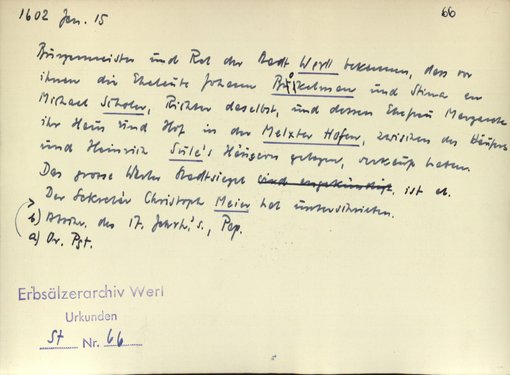 1602 Jan. 15
66
Bürgermeister und Rat der Stadt Werl bekennen, dass vor
ihnen die Eheleute Johann Bükelman und Stina an
Michael Schöler, Richter daselbst, und dessen Ehefrau Margarete
ihr Haus und Hof in der Melxter Hofen, zwischen des
und Heinrich Sule's Häusern gelegen, verkauft haben.
Das grosse Werler Stadtsiegel wird angekündigt, ist ab.
Der Sekretär Christoph Meier hat unterschrieben.
b) Abschr. des 17. Jahrh.'s., Pap.
a) Or. Pgt.
Erbsälzerarchiv Werl
Urkunden
St Nr. 66